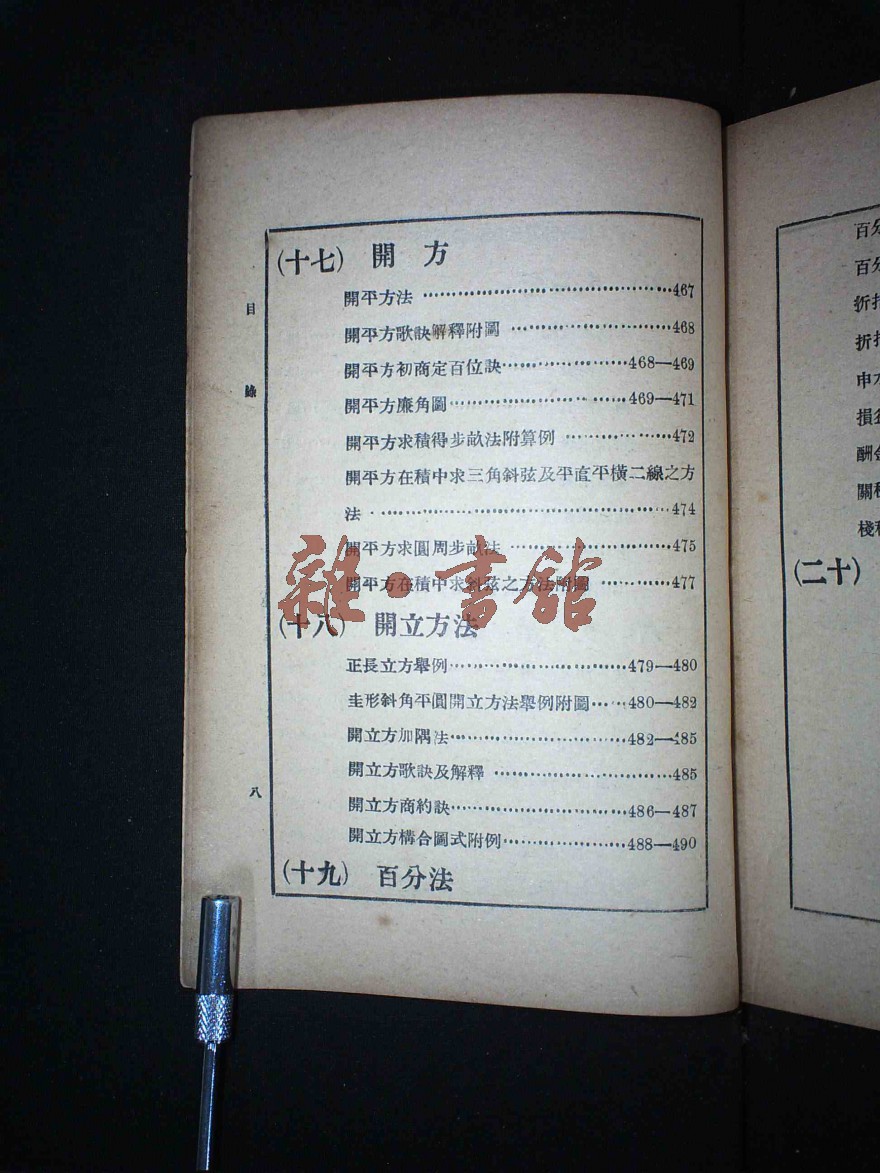 (十七) 開方
開平方法……………………………467
開平方歌訣解釋附圖…………………468
開平方初商定百位訣……………468—469
開平方廉角圖……………………469—471
開平方求積得步畝法附算例……………472
開平方在積中求三角斜弦及平直平橫二線之方
法……………………………………474
開平方求圓周步畝法…………………475
開平方在積中求斜弦之方法附圖………477
(十八) 開立方法
正長立方舉例……………………479—480
圭形斜角平圓開立方法舉例附圖……480—482
開立方加隅法……………………482—485
開立方歌訣及解釋……………………485
開立方商約訣……………………486—487
開立方構合圖式附例……………488—490
(十九) 百分法
目錄
八
雜·書館
百分
百分
折扣
折扣
申水
損益
酬金
關稅
棧租
(二十)